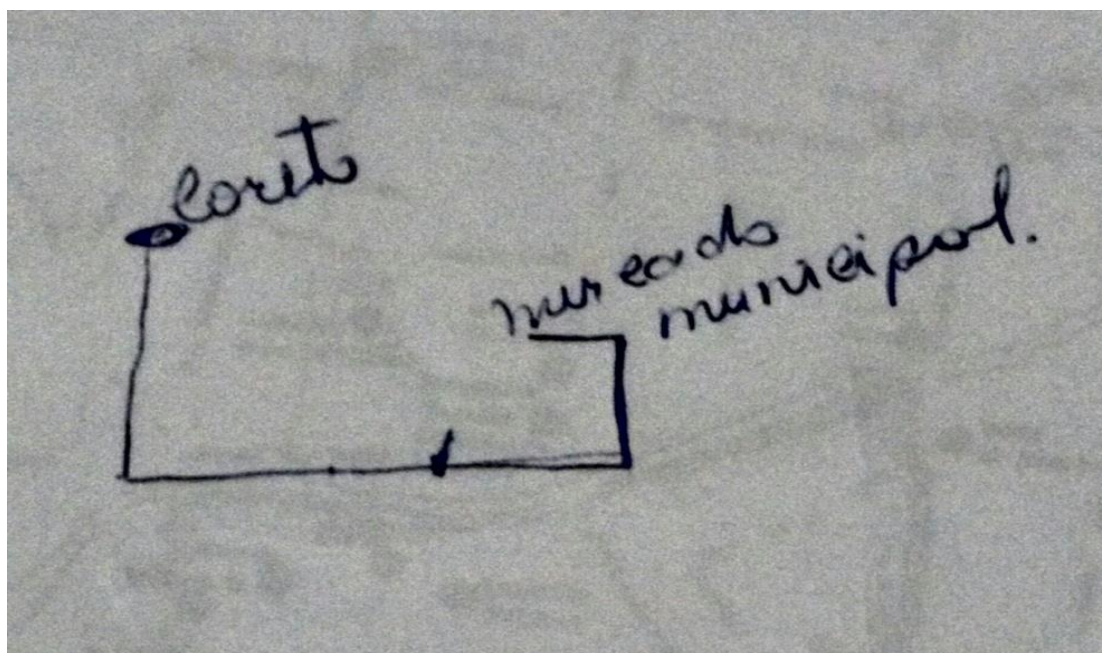 Loreto
mercado
municipal.